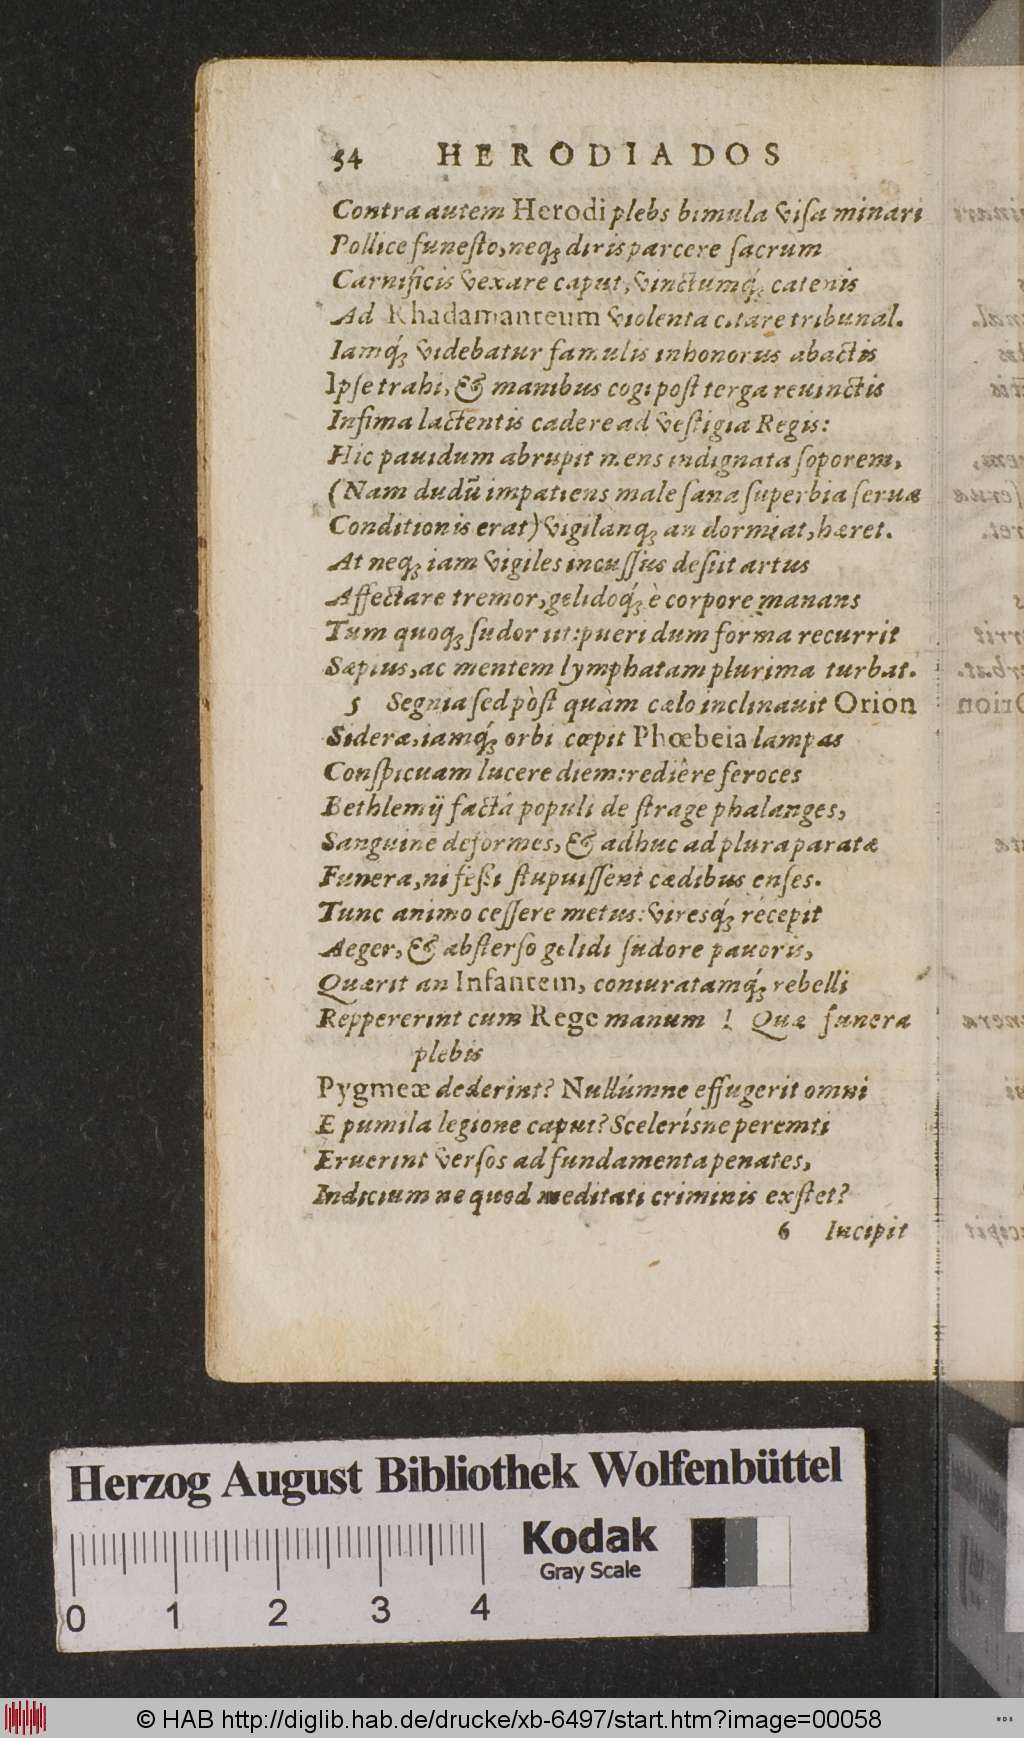 54 HERODIADOS
Contra autem Herodi plebs bimula visa minari
Pollice funesto, neq́ꝫ diris parcere sacrum
Carnificis vexare caput, vinctumq́ꝫ catenis
Ad Rhadamanteum violenta citare tribunal.
Iamq́ꝫ videbatur famulis inhonorus abactis
Ipse trahi, & manibus cogi post terga reuinctis
Infima lactentis cadere ad vestigia Regis:
Hic pauidum abrupit mens indignata soporem,
(Nam dudū impatiens male sana superbia seruæ
Conditionis erat) vigilanqꝫ an dormiat, hæret.
At neqꝫ iam vigiles incussus desiit artus
Affectare tremor, gelidoq́ꝫ è corpore manans
Tum quoqꝫ sudor iit: pueri dum forma recurrit
Sæpius, ac mentem lymphatam plurima turbat.
5 Segnia sed pòst quàm cælo inclinauit Orion
Sidera, iamq́ꝫ orbi cœpit Phœbeia lampas
Conspicuam lucere diem: rediêre feroces
Bethlemij factâ populi de strage phalanges,
Sanguine deformes, & adhuc ad plura paratæ
Funera, ni fessi stupuissent cædibus enses.
Tunc animo cessere metus: viresq́ꝫ recepit
Aeger, & absterso gelidi sudore pauoris,
Quærit an Infantem, coniuratamq́ꝫ rebelli
Reppererint cum Rege manum! Quæ funera
plebis
Pygmeæ dederint? Nullúmne effugerit omni
E pumila legione caput? Scelerísne peremti
Eruerint versos ad fundamenta penates,
Indicium ne quod meditati criminis exstet?
6 Incipit
Herzog August Bibliothek Wolfenbüttel
Kodak
Gray Scale
0 1 2 3 4
© HAB http://diglib.hab.de/drucke/xb-6497/start.htm?image=00058